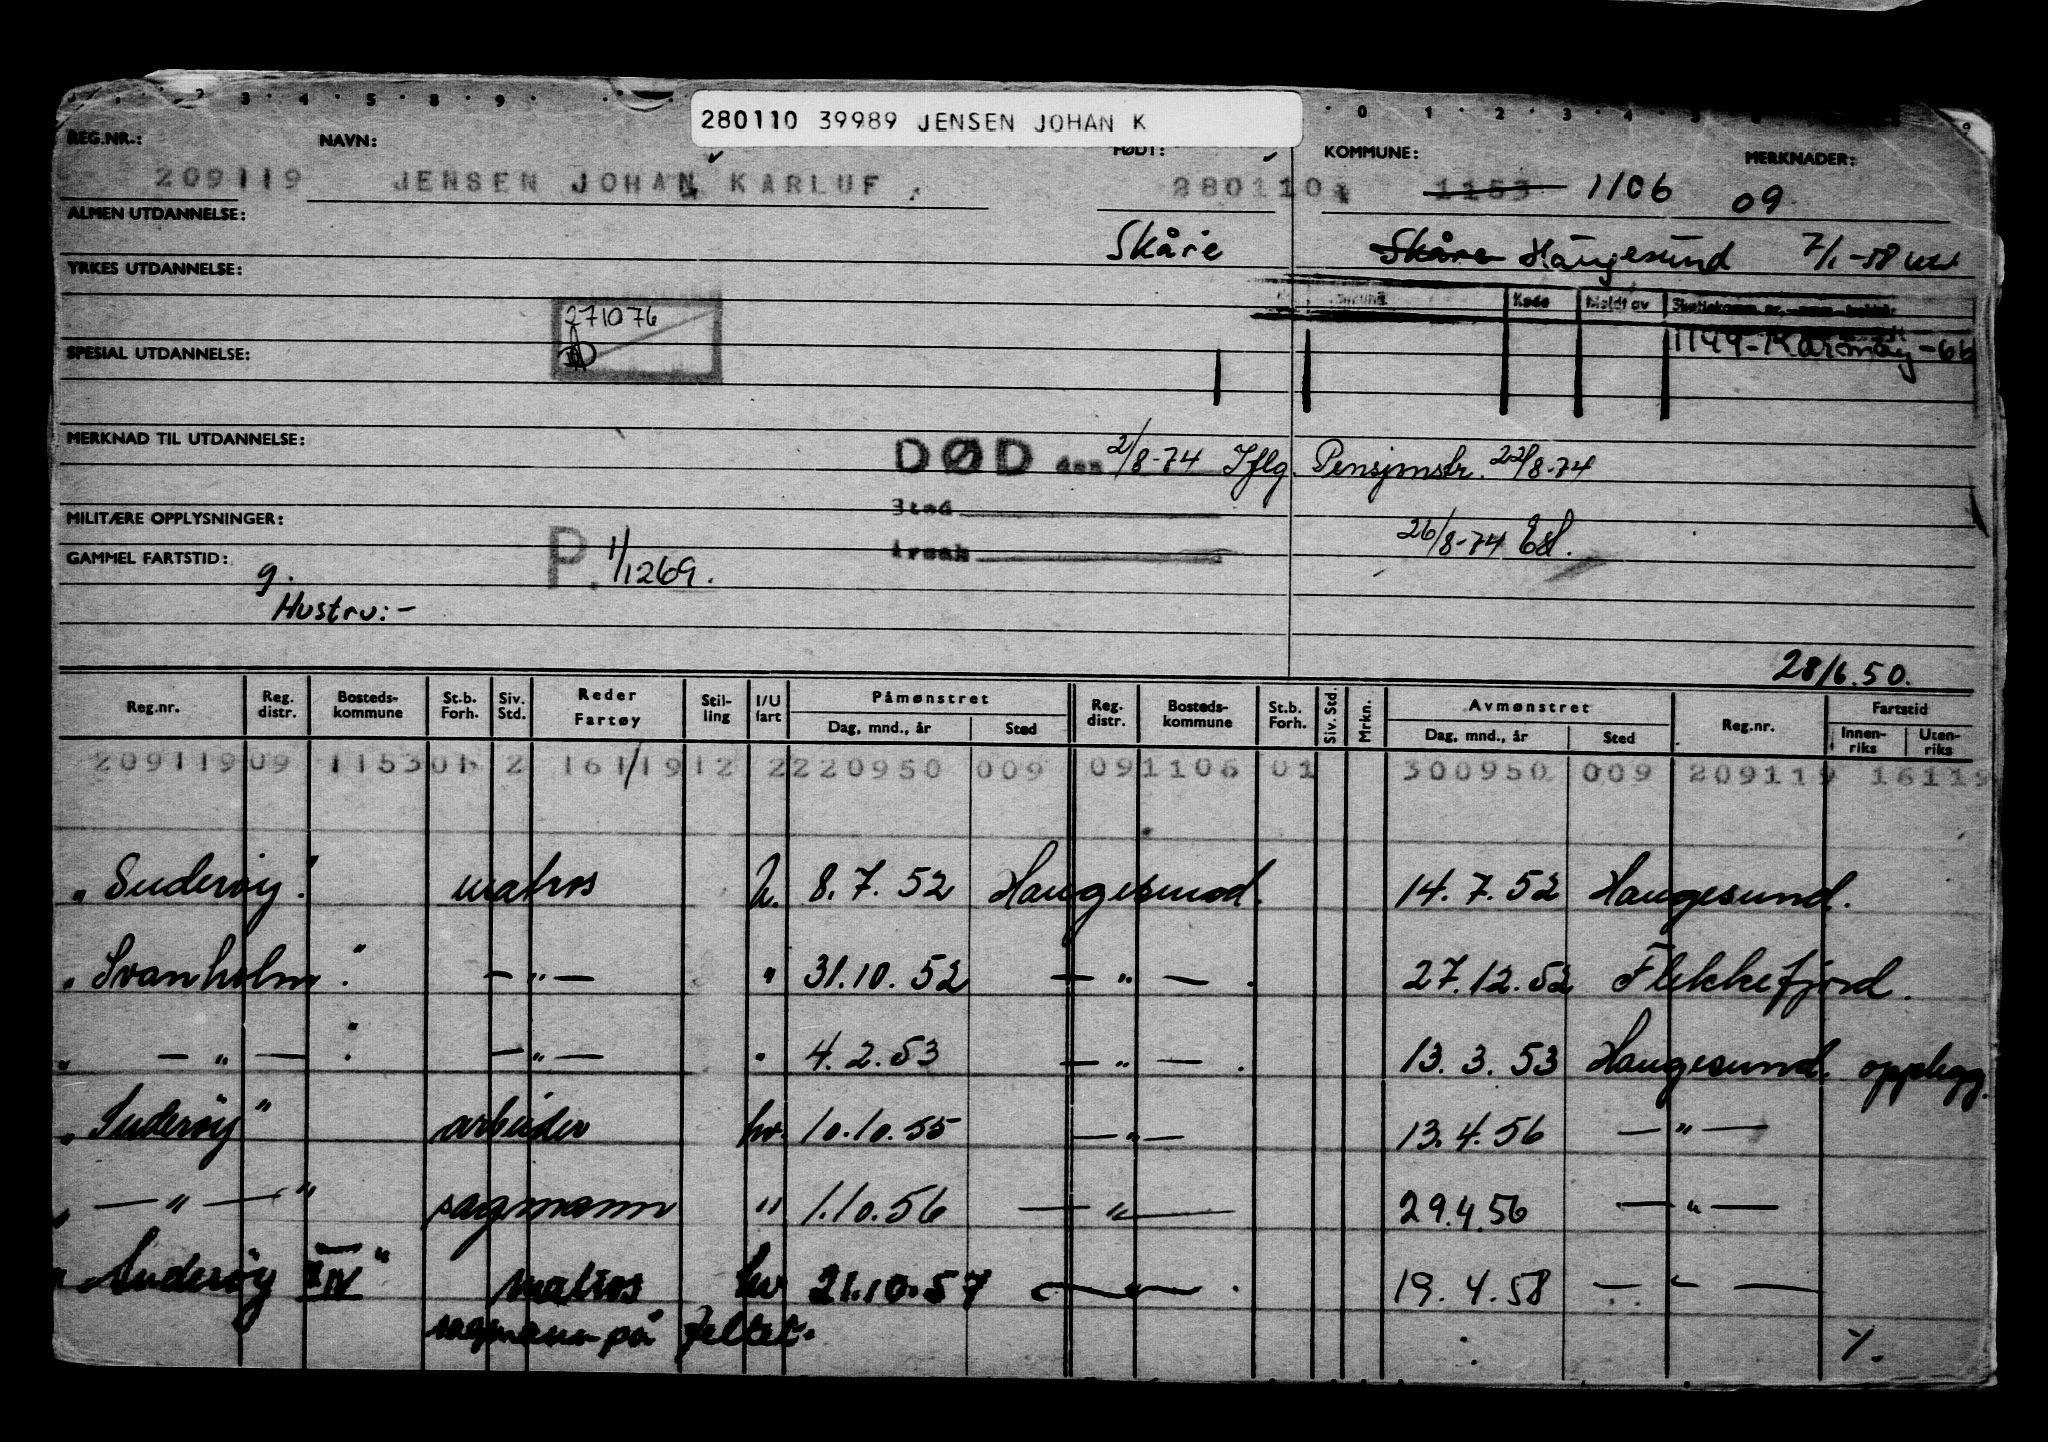 280110 39989 JENSEN JOHAN K
REG.NR.: NAVN: FØDT: KOMMUNE: MERKNADER:
209119 JENSEN JOHAN KARLUF 280110 1153 1106 09
ALMEN UTDANNELSE:
Skåre Skåre Haugesund 7/1-58
YRKES UTDANNELSE:
Kode Meldt av
271076
1149-Karmøy-66
SPESIAL UTDANNELSE:
MERKNAD TIL UTDANNELSE:
DØD den 2/8-74 Iflg. Pensjonstr. 22/8-74
Sted
MILITÆRE OPPLYSNINGER:
26/8-74
Årsak
GAMMEL FARTSTID: g. P. 1/1269.
Hustru:-
28/6.50.
Reg.nr. Reg. distr. Bosteds-kommune St.b. Forh. Siv. Std. Reder Fartøy Stil-ling I/U fart Påmønstret Dag, mnd., år Sted Reg. distr. Bosteds-kommune St.b. Forh. Siv. Std. Mrkn. Avmønstret Dag, mnd., år Sted Reg.nr. Fartstid Innen-riks Uten-riks
209119 09 1153 01 2 161/19 12 2 220950 009 09 1106 01 300950 009 209119 16119
"Suderøy" matros U. 8.7.52 Haugesund. 14.7.52 Haugesund.
"Svanholm" — " — " 31.10.52 — " — . 27.12.52 Flekkefjord.
" — " — " — " — " 4.2.53 — " — . 13.3.53 Haugesund. opplegg.
"Suderøy" arbeider hv. 10.10.55 — " — 13.4.56 — " —
" — " — " sagmann " 1.10.56 — " — 29.4.56 — " —
"Suderøy IV" matros hv 21.10.57 — " — . 19.4.58 — " —
sagmann på feltet.